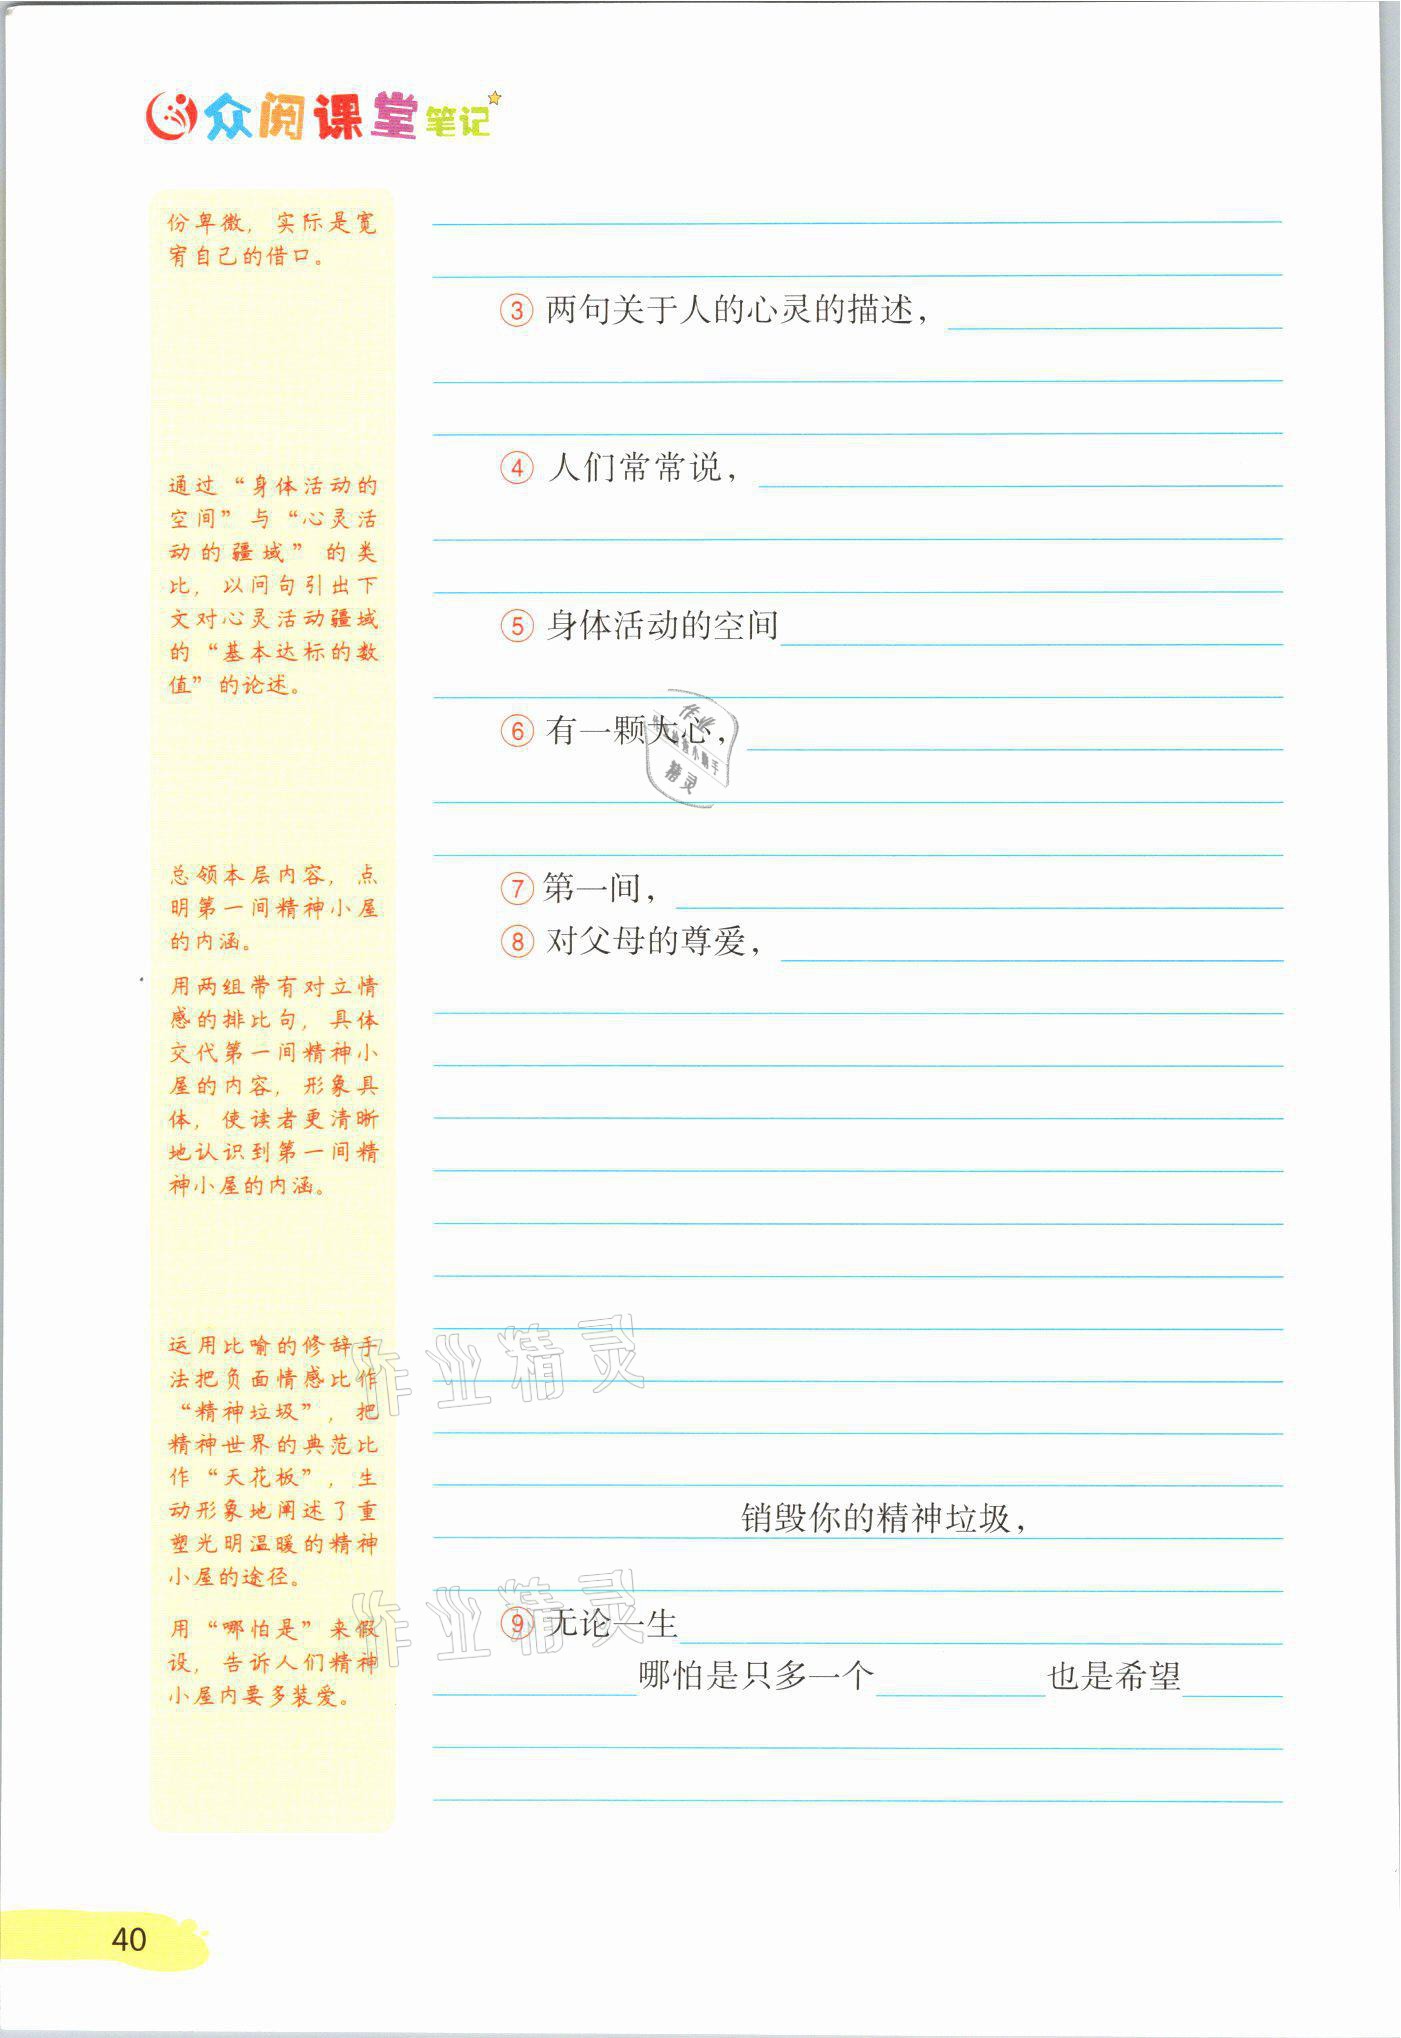 众阅课堂笔记
份卑微，实际是宽
宥自己的借口。
通过“身体活动的
空间”与“心灵活
动的疆域”的类
比，以问句引出下
文对心灵活动疆域
的“基本达标的数
值”的论述。
总领本层内容，点
明第一间精神小屋
的内涵。
用两组带有对立情
感的排比句，具体
交代第一间精神小
屋的内容，形象具
体，使读者更清晰
地认识到第一间精
神小屋的内涵。
运用比喻的修辞手
法把负面情感比作
“精神垃圾”，把
精神世界的典范比
作“天花板”，生
动形象地阐述了重
塑光明温暖的精神
小屋的途径。
用“哪怕是”来假
设，告诉人们精神
小屋内要多装爱。
③ 两句关于人的心灵的描述，
④ 人们常常说，
⑤ 身体活动的空间
⑥ 有一颗大心，
⑦ 第一间，
⑧ 对父母的尊爱，
销毁你的精神垃圾，
⑨ 无论一生
哪怕是只多一个 也是希望
作业
精灵
作业精灵
作业精灵
40